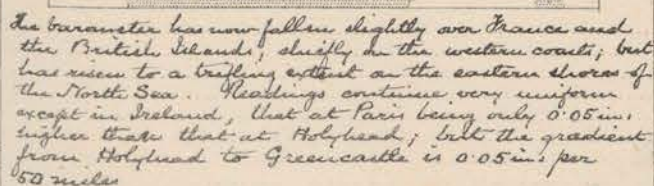 The barometer has now fallen slightly over France and
the British Islands, chiefly on the western coasts; but
has risen to a trifling extent on the eastern shores of
the North Sea. Readings continue very uniform
except in Ireland, that at Paris being only 0.05 in.
higher than that at Holyhead; but the gradient
from Holyhead to Greencastle is 0.05 in. per
50 miles